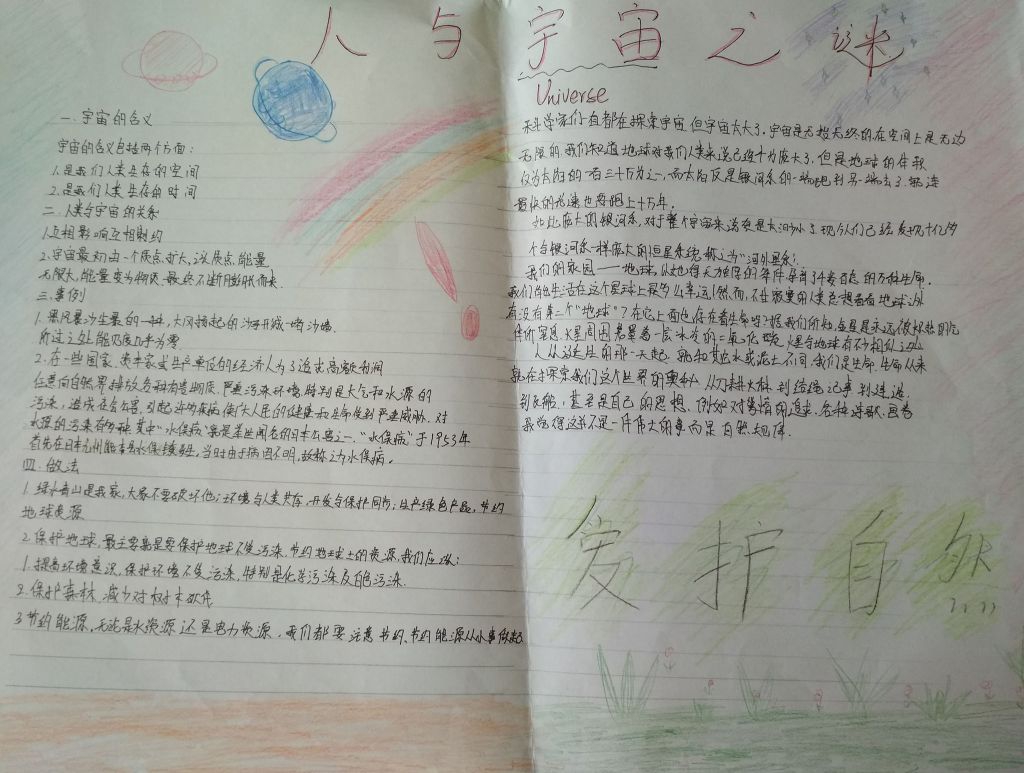 人与宇宙之谜
Universe
一.宇宙的含义
宇宙的含义包括两个方面:
1.是我们人类生存的空间
2.是我们人类生存的时间
二.人类与宇宙的关系
1.互相影响互相制约
2.宇宙最初由一个质点变大,这质点,能量
无限大,能量变为物质,最终不断膨胀而来.
三.事例
1.黑风暴沙尘暴的一种,大风扬起的沙子形成一堵沙墙.
所过之处能见度几乎为零
2.在一些国家,资本家或生产单位的经济人为了追求高额利润
任意向自然界排放各种有害物质.严重污染环境,特别是大气和水源的
污染,造成在公害.引起许多疾病,使广大人民的健康和生命受到严重威胁.对
水源的污染有多种,其中"水俣病"就是举世闻名的日本公害之一."水俣病"于1953年
首先在日本九州熊本县水俣镇发生,当时由于病因不明,故称之为水俣病。
四.做法
1.绿水青山是我家,大家不要破坏他;环境与人类共存,开发与保护同步;生产绿色产品,节约
地球资源
2.保护地球,最主要就是要保护地球不受污染.节约地球上的资源.我们应该:
1.提高环境意识,保护环境不受污染,特别是化学污染及白色污染.
2.保护森林,减少对树木砍伐
3.节约能源,无论是水资源还是电力资源.我们都要注意节约.节约能源从小事做起
科学家们一直都在探索宇宙.但宇宙太大了.宇宙是无始无终的在空间上是无边
无限的.我们知道地球对我们人类来说已经十分庞大了,但是地球的体积
仅为太阳的一百三十万分之一,而太阳仅是银河系的一端跑到另一端去了.就连
最快的光速也要跑上十万年.
如此庞大的银河系,对于整个宇宙来说更是太渺小了.现今人们已经发现十亿多
个与银河系一样庞大的恒星系统.称之为"河外星系".
我们的家园——地球,以她得天独厚的条件孕育了丰富多彩的万种生命.
我们人类生活在这个星球上是多么幸运!然而,不甘寂寞的人类总想看看地球以外
有没有第二个"地球"?在它上面也存在着生命吗?据我们所知,金星是永远被炽热的气
体所窒息.火星周围笼罩着一层冰冷的二氧化碳.火星与地球有不少相似之处.
人从诞生的那一天起.就和其他水或泥土不同,我们是生命.生命从来
就在于探索我们这个世界的奥秘,从刀耕火种.到结绳记事.到速递.
到衣服,甚至是自己的思想.例如对爱情的追求.各种诗歌.画卷
我觉得这并不是一件伟大的事而是自然规律.
爱护自然